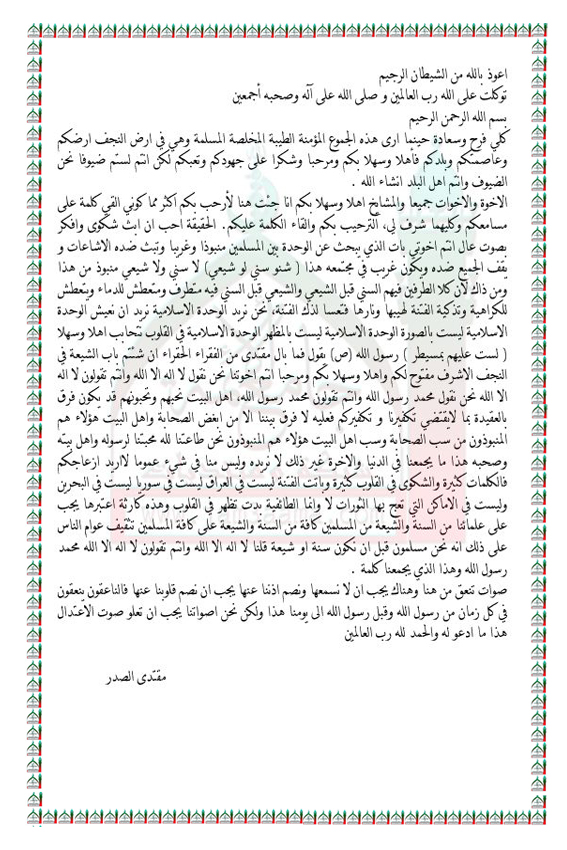 اعوذ بالله من الشيطان الرجيم
توكلت على الله رب العالمين و صلى الله على آله وصحبه أجمعين
بسم الله الرحمن الرحيم
كلي فرح وسعادة حينما ارى هذه الجموع المؤمنة الطيبة المخلصة المسلمة وهي في ارض النجف ارضكم
وعاصمتكم وبلدكم فاهلا وسهلا بكم ومرحبا وشكرا على جهودكم وتعبكم لكن انتم لستم ضيوفا نحن
الضيوف وانتم اهل البلد انشاء الله .
الاخوة والاخوات جميعا والمشايخ اهلا وسهلا بكم انا جئت هنا لأرحب بكم اكثر مما كوني القي كلمة على
مسامعكم وكليهما شرف لي، الترحيب بكم والقاء الكلمة عليكم. الحقيقة احب ان ابث شكوى وافكر
بصوت عال انتم اخوتي بات الذي يبحث عن الوحدة بين المسلمين منبوذا وغريبا وتبث ضده الاشاعات و
يقف الجميع ضده ويكون غريب في مجتمعه هذا ( شنو سني لو شيعي) لا سني ولا شيعي منبوذ من هذا
ومن ذاك لأن كلا الطرفين فيهم السني قبل الشيعي والشيعي قبل السني فيه متطرف ومتعطش للدماء ويتعطش
للكراهية وتذكية الفتنة لهيبها ونارها فتعسا لذك الفتنة، نحن نريد الوحدة الاسلامية نريد ان نعيش الوحدة
الاسلامية ليست بالصورة الوحدة الاسلامية ليست بالمظهر الوحدة الاسلامية في القلوب نتحابب اهلا وسهلا
( لست عليهم بمسيطر ) رسول الله (ص) يقول فما بال مقتدى من الفقراء الحقراء ان شئتم باب الشيعة في
النجف الاشرف مفتوح لكم واهلا وسهلا بكم ومرحبا انتم اخوتنا نحن نقول لا اله الا الله وانتم تقولون لا اله
الا الله نحن نقول محمد رسول الله وانتم تقولون محمد رسول الله، اهل البيت نحبهم وتحبونهم قد يكون فرق
بالعقيدة بما لايقتضي تكفيرنا و تكفيركم فعليه لا فرق بيننا الا من ابغض الصحابة واهل البيت هؤلاء هم
المنبوذون من سب الصحابة وسب اهل البيت هؤلاء هم المنبوذون نحن طاعتنا لله محبتنا لرسوله واهل بيته
وصحبه هذا ما يجمعنا في الدنيا والاخرة غير ذلك لا نريده وليس منا في شيء عموما لااريد ازعاجكم
فالكلمات كثيرة والشكوى في القلوب كثيرة وباتت الفتنة ليست في العراق ليست في سوريا ليست في البحرين
وليست في الاماكن التي تعج بها الثورات لا وانما الطائفية بدت تظهر في القلوب وهذه كارثة اعتبرها يجب
على علمائنا من السنة والشيعة من المسلمين كافة من السنة والشيعة على كافة المسلمين تثقيف عوام الناس
على ذلك انه نحن مسلمون قبل ان نكون سنة او شيعة قلنا لا اله الا الله وانتم تقولون لا اله الا الله محمد
رسول الله وهذا الذي يجمعنا كلمة .
صوات تنعق من هنا وهناك يجب ان لا نسمعها ونصم اذننا عنها يجب ان نصم قلوبنا عنها فالناعقون ينعقون
في كل زمان من رسول الله وقبل رسول الله الى يومنا هذا ولكن نحن اصواتنا يجب ان تعلو صوت الاعتدال
هذا ما ادعو له والحمد لله رب العالمين
مقتدى الصدر